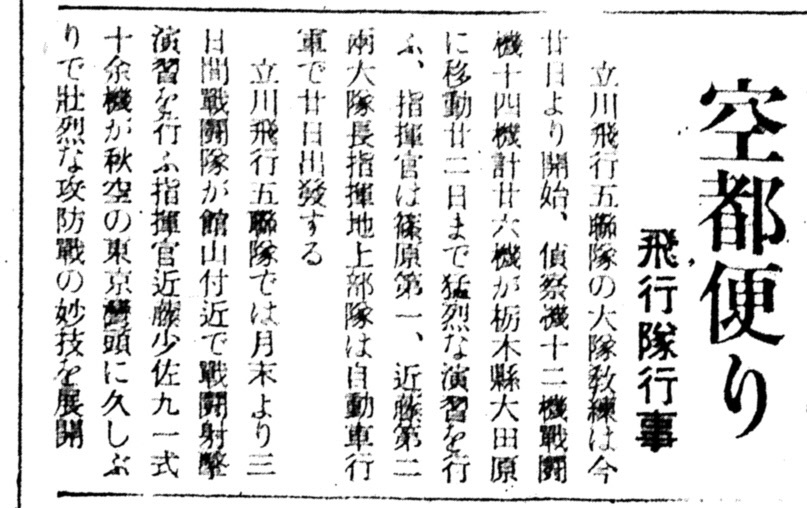 空都便り
飛行隊行事
立川飛行五聯隊の大隊敎練は今
廿日より開始、偵察機十二機戰鬪
機十四機計廿六機が栃木縣大田原
に移動廿二日まで猛烈な演習を行
ふ、指揮官は篠原第一、近藤第二
兩大隊長指揮地上部隊は自動車行
軍で廿日出發する
立川飛行五聯隊では月末より三
日間戰鬪隊が館山付近で戰鬪射擊
演習を行ふ指揮官近藤少佐九一式
十余機が秋空の東京灣頭に久しぶ
りで壯烈な攻防戰の妙技を展開